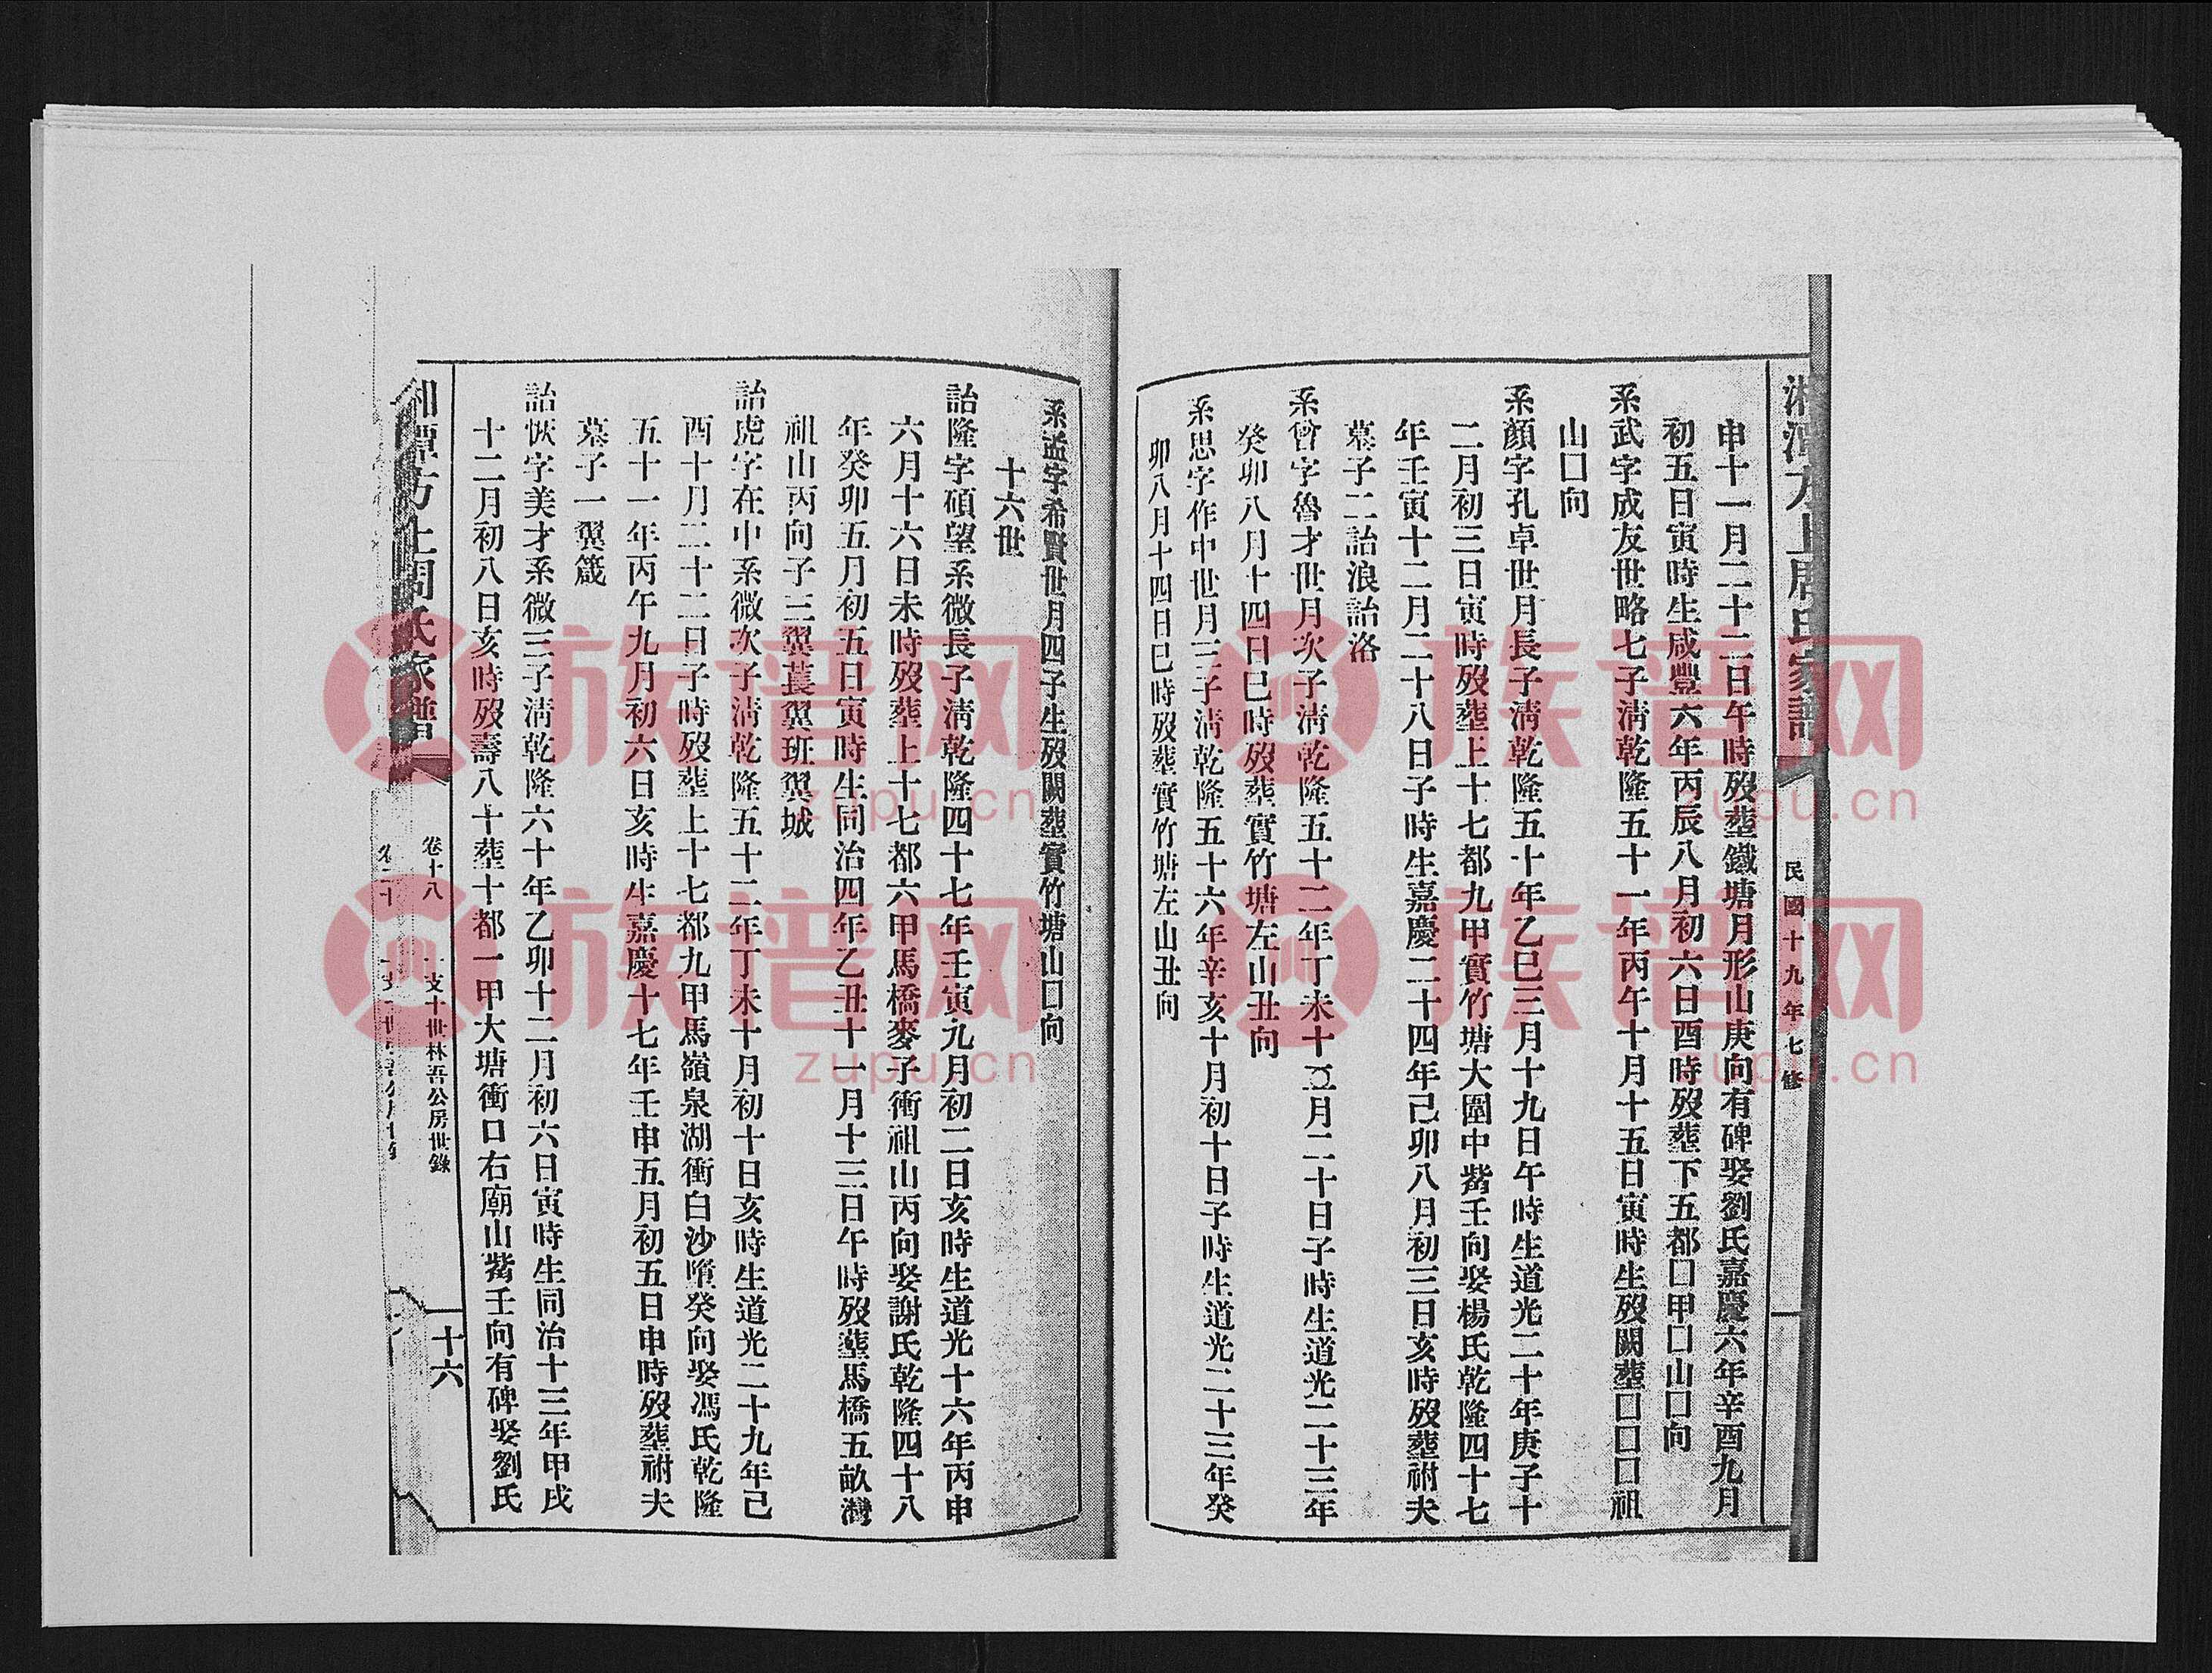 湘潭方上周氏家譜
民國十九年七修
申十一月二十二日午時歿葬鐵塘月形山庚向有碑娶劉氏嘉慶六年辛酉九月
初五日寅時生咸豐六年丙辰八月初六日酉時歿葬下五都囗甲囗山囗向
系武字成友世略七子清乾隆五十一年丙午十月十五日寅時生歿闕葬囗囗囗祖
山囗向
系顏字孔卓世月長子清乾隆五十年乙巳三月十九日午時生道光二十年庚子十
二月初三日寅時歿葬上十七都九甲實竹塘大圍中觜壬向娶楊氏乾隆四十七
年壬寅十二月二十八日子時生嘉慶二十四年己卯八月初三日亥時歿葬祔夫
墓子二詒浪詒洛
系曾字魯才世月次子清乾隆五十二年丁未十月二十日子時生道光二十三年
癸卯八月十四日巳時歿葬實竹塘左山丑向
系思字作中世月三子清乾隆五十六年辛亥十月初十日子時生道光二十三年癸
卯八月十四日巳時歿葬實竹塘左山丑向
系孟字希賢世月四子生歿闕葬實竹塘山囗向
十六世
詒隆字碩望系微長子清乾隆四十七年壬寅九月初二日亥時生道光十六年丙申
六月十六日未時歿葬上十七都六甲馬橋麥子衝祖山丙向娶謝氏乾隆四十八
年癸卯五月初五日寅時生同治四年乙丑十一月十三日午時歿葬馬橋五畝灣
祖山丙向子三翼萇翼班翼城
詒虎字在中系微次子清乾隆五十二年丁未十月初十日亥時生道光二十九年己
酉十月二十二日子時歿葬上十七都九甲馬嶺泉湖衝白沙墮癸向娶馮氏乾隆
五十一年丙午九月初六日亥時生嘉慶十七年壬申五月初五日申時歿葬祔夫
墓子一翼箴
詒恢字美才系微三子清乾隆六十年乙卯十二月初六日寅時生同治十三年甲戌
十二月初八日亥時歿壽八十葬十都一甲大塘衝口右廟山觜壬向有碑娶劉氏
湘潭方上周氏家譜
卷十八
一支十世林吾公房世錄
十六
族譜网
zupu.cn
族譜网
zupu.cn
族譜网
zupu.cn
族譜网
zupu.cn